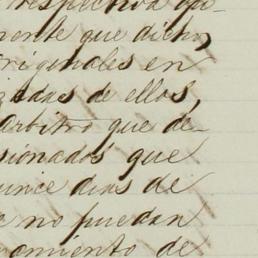 respectiva opi-
mente que dichos
originales en
de ellos,
arbitro que de-
sionados que
quince dias de
no puedan
amiento de